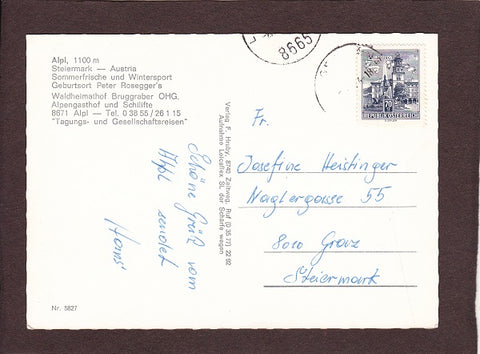 Alpl, 1100 m
Steiermark — Austria
Sommerfrische und Wintersport
Geburtsort Peter Rosegger's
Waldheimathof Bruggraber OHG.
Alpengasthof und Schilifte
8671 Alpl — Tel. 0 38 55 / 26 1 15
"Tagungs- und Gesellschaftsreisen"
Schöne Grüße vom
Alpl sendet
Hans
Nr. 5827
Verlag F. Hruby, 8740 Zeltweg, Ruf (0 35 77) 22 92
Aufnahme Leicaflex SL der Schärfe wegen
8665
REPUBLIK ÖSTERREICH
Fr.
Josefine Heistinger
Naglergasse 55
8010 Graz
Steiermark